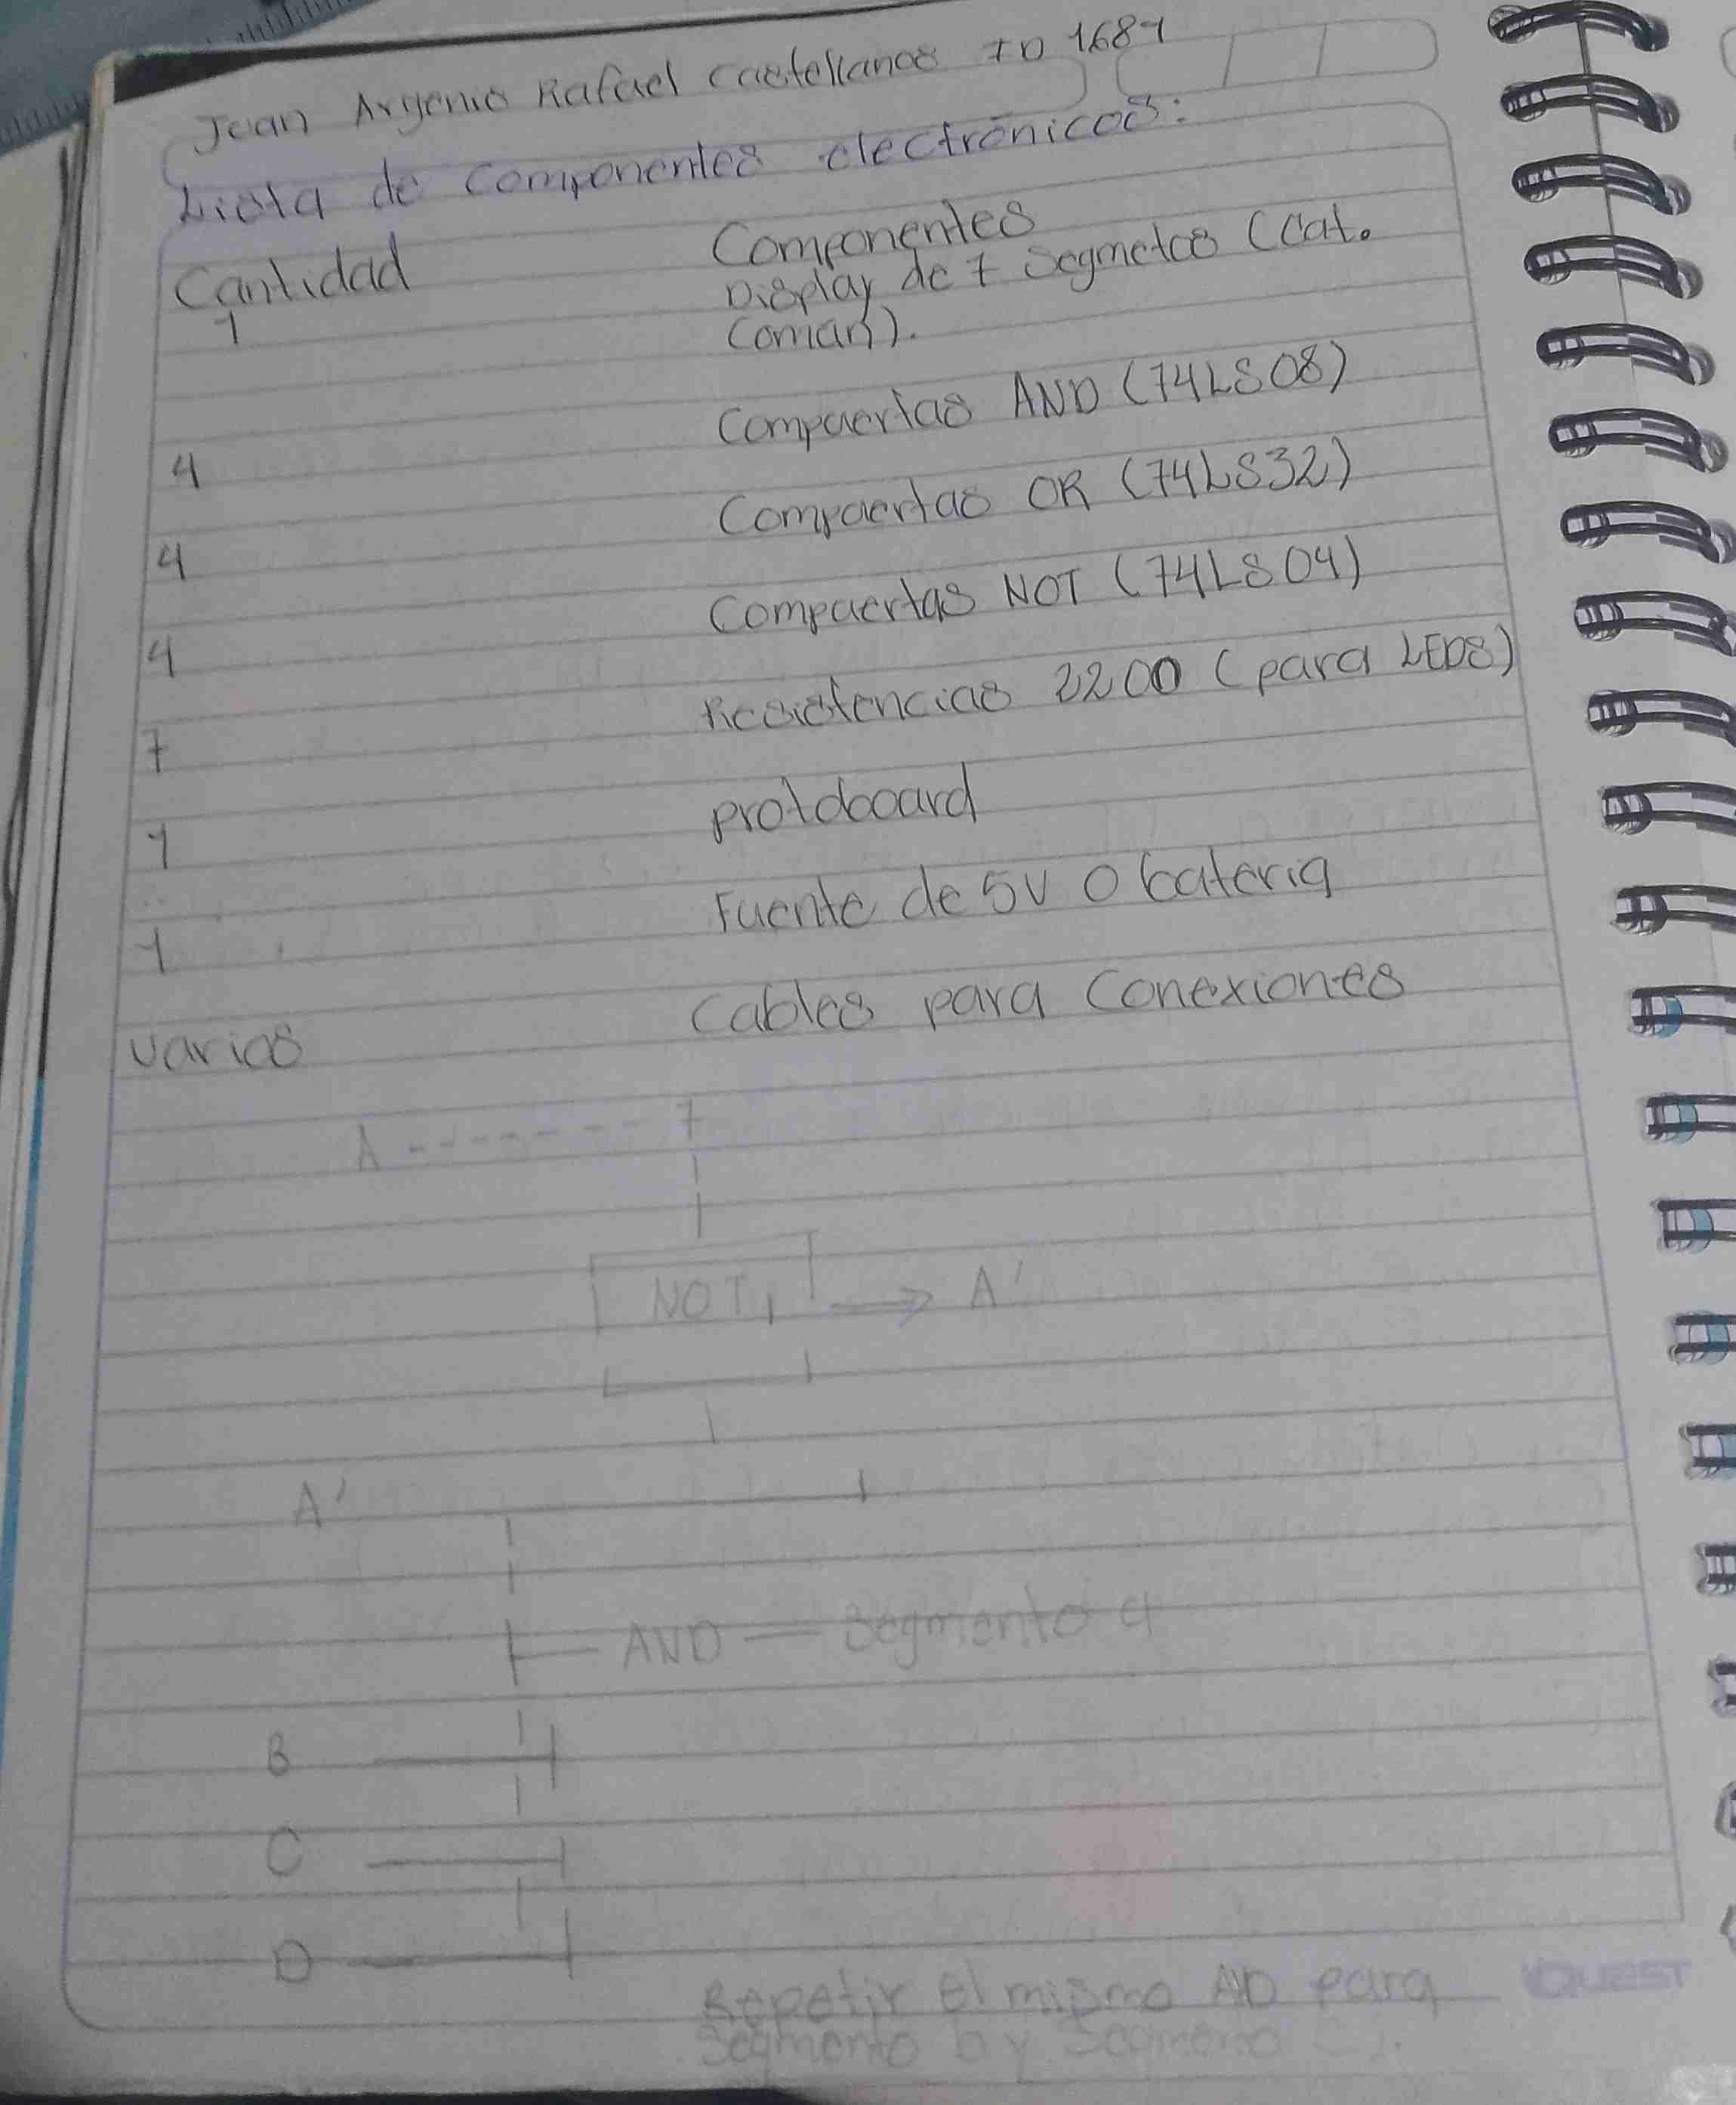 Jean Argenis Rafael Castellanos ID 1687
Lista de componentes electrónicos:
Cantidad Componentes
1 Display de 7 Segmetos (Cat.
Coman).
4 Compuertas AND (74LS08)
4 Compuertas OR (74LS32)
4 Compuertas NOT (74LS04)
7 Resistencias 2200 (para LEDS)
1 protoboard
1 Fuente de 5V o bateria
varios Cables para Conexiones
A
NOT A'
A'
AND Segmento a
B
C
D
Repetir el mismo AND para
Segmento b y Segmento C).
QUEST